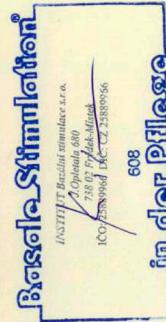 Basale Stimulation®
INSTITUT Bazální stimulace s.r.o.
J.Opletala 680
738 02 Frýdek-Místek
IČO: 25889966 DIČ: CZ 25889966
608
in der Pflege